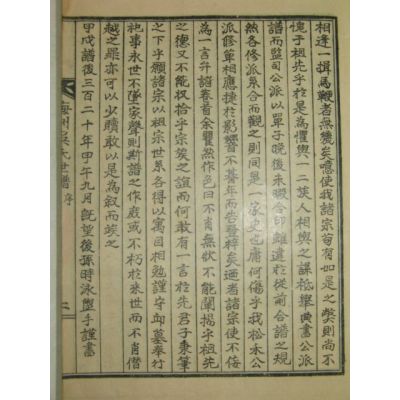 相逢一揖馬鞭者無幾矣噫使我諸宗苟有如是之弊則尚不
愧于祖先乎於是爲懼與一二族人相與之謀松舉典書公派
譜而監司公派以單子晚後未暇合印雖違於從前合譜之規
然各修派系合而觀之則同是一家史也庸何傷乎我松木公
派修單相應捷於影響不暮年而告登梓矣迺者諸宗使不佞
爲一言弁譜卷首余瞿然作色曰不肖無狀不能闡揚乎祖先
之德又不能收拾乎宗族之誼而何敢有一言於先君子秉筆
之下乎願諸宗以祖宗世系各得以寓目相勉謹守邱墓奉行
祀事永世不墜家聲則斯譜之作庶或不朽於來世而不肖僭
越之罪亦可以少贖敢以是爲叙而竢之
甲戌譜後三百二十年甲午九月旣望後孫時泳盥手謹書
吳氏世譜 序
二